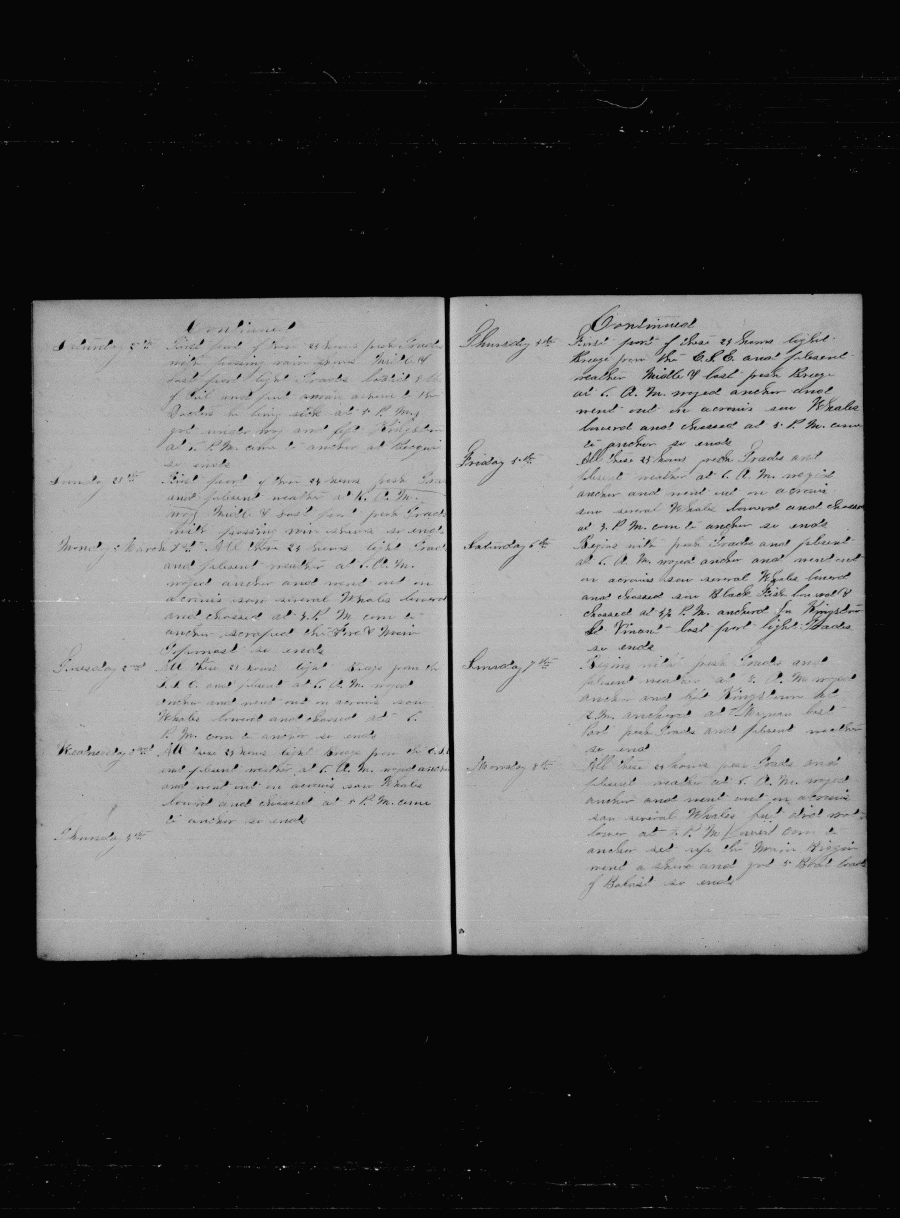 Continued
Saturday 27th First part of these 24 hours fresh Trades
with passing rain Middle &
last part light Trades
of Oil and put a man ashore to the
Doctors he being sick at 5 P. M.
got under way and left Kingston
at P. M. come to anchor at Becquia
so ends
Sunday 28th First part of these 24 hours fresh Trades
and plesent weather at A. M.
Middle & Last part fresh Trades
with passing rain so ends
Monday March 1st All these 24 hours light Trades
and plesent weather at 6. A. M.
wayed anchor and went out on
a cruis saw several Whales lowerd
and chassed at P. M. come to
anchor scraped the Fore & Main
Topmast so ends
Tuesday 2nd All these 24 hours light Breeze from the
and plesent at 6. A. M. wayed
anchor and went out on acruis saw
Whales lowerd and chassed at 6.
P. M. com to anchor so ends
Wednesday 3rd All these 24 hours light Breeze from the E.S.E
and plesent weather at 6. A. M. wayed anchor
and went out on acruis saw Whales
lowerd and chassed at P. M. come
to anchor so ends
Thursday 4th
Continued
Thursday 4th First part of these 24 hours light
Breeze from the E.S.E. and plesent
weather Middle & last fresh Breeze
at 6. A. M. wayed anchor and
went out on acruis saw Whales
lowerd and chassed at 5. P. M. come
to anchor so ends
Friday 5th All these 24 hours fresh Trades and
plesent weather at 6. A. M. wayed
anchor and went out on acruis
saw several Whales lowerd and chassed
at P. M. com to anchor so ends
Saturday 6th Begins with fresh Trades and plesent
at 6. A. M. wayed anchor and went out
on acruis saw several Whales lowerd
and chassed saw Black Fish lowerd &
chassed at P. M. anchord In Kingston
St Vincent last part light Trades
so ends
Sunday 7th Begins with fresh Trades and
plesent weather at A. M. wayed
anchor and left Kingstown At
M. anchord at last
Part fresh Trades and plesent weather
so end
Monday 8th All these 24 hours fresh Trades and
plesent weather at 6. A. M. wayed
anchor and went out on acruis
saw several Whales but did not
lower at P. M. com to
anchor set up the Main Riggin
went a shore and got 5 Boat loads
of Balast so ends